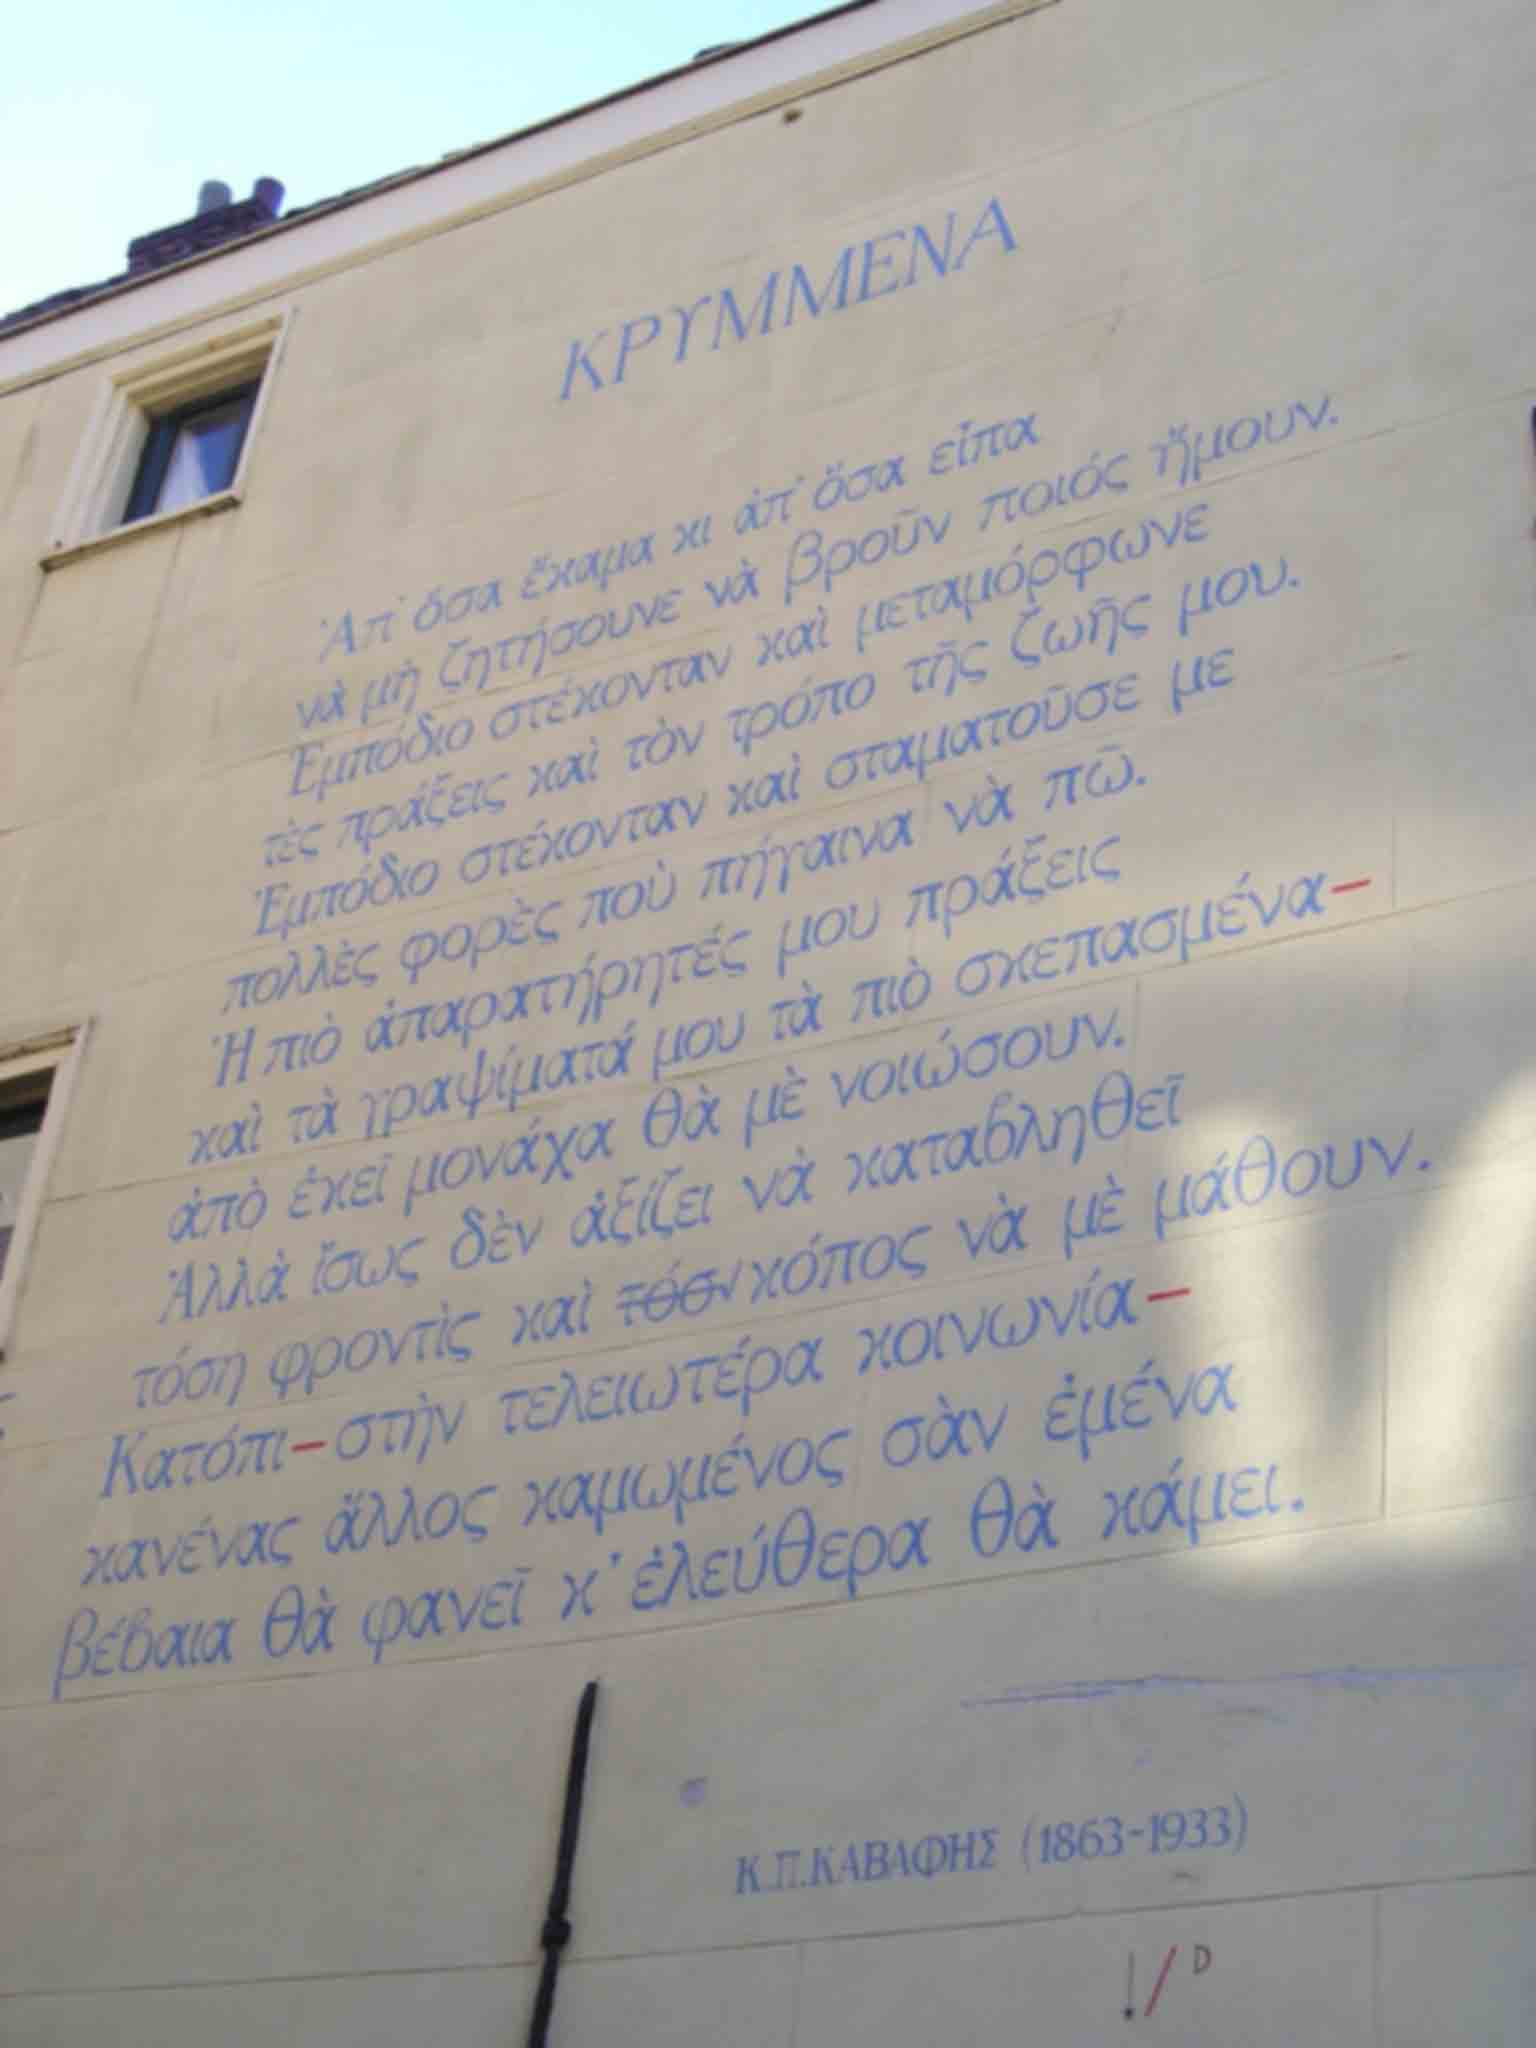 ΚΡΥΜΜΕΝΑ
Ἀπ' ὅσα ἔκαμα κι ἀπ' ὅσα εἶπα
νὰ μὴ ζητήσουνε νὰ βροῦν ποιός ἤμουν.
Ἐμπόδιο στέκονταν καὶ μεταμόρφωνε
τὲς πράξεις καὶ τὸν τρόπο τῆς ζωῆς μου.
Ἐμπόδιο στέκονταν καὶ σταματοῦσε με
πολλὲς φορὲς ποὺ πήγαινα νὰ πῶ.
Ἡ πιὸ ἀπαρατήρητές μου πράξεις
καὶ τὰ γραψίματά μου τὰ πιὸ σκεπασμένα—
ἀπὸ ἐκεῖ μονάχα θὰ μὲ νοιώσουν.
Ἀλλὰ ἴσως δὲν ἀξίζει νὰ καταβληθεῖ
τόση φροντὶς καὶ τόσ' κόπος νὰ μὲ μάθουν.
Κατόπι—στὴν τελειωτέρα κοινωνία—
κανένας ἄλλος καμωμένος σὰν ἐμένα
βέβαια θὰ φανεῖ κ' ἐλεύθερα θὰ κάμει.
Κ.Π.ΚΑΒΑΦΗΣ (1863-1933)